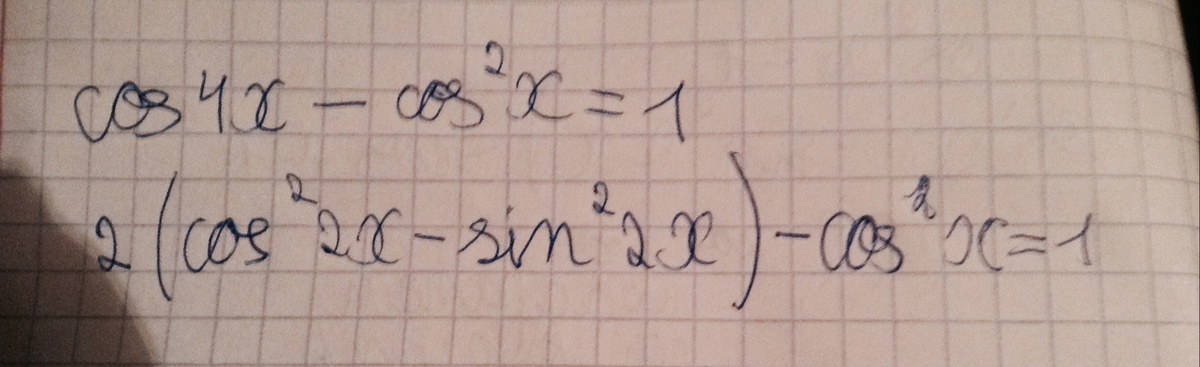 cos4x - cos²x = 1
2(cos²2x - sin²2x) - cos²x = 1